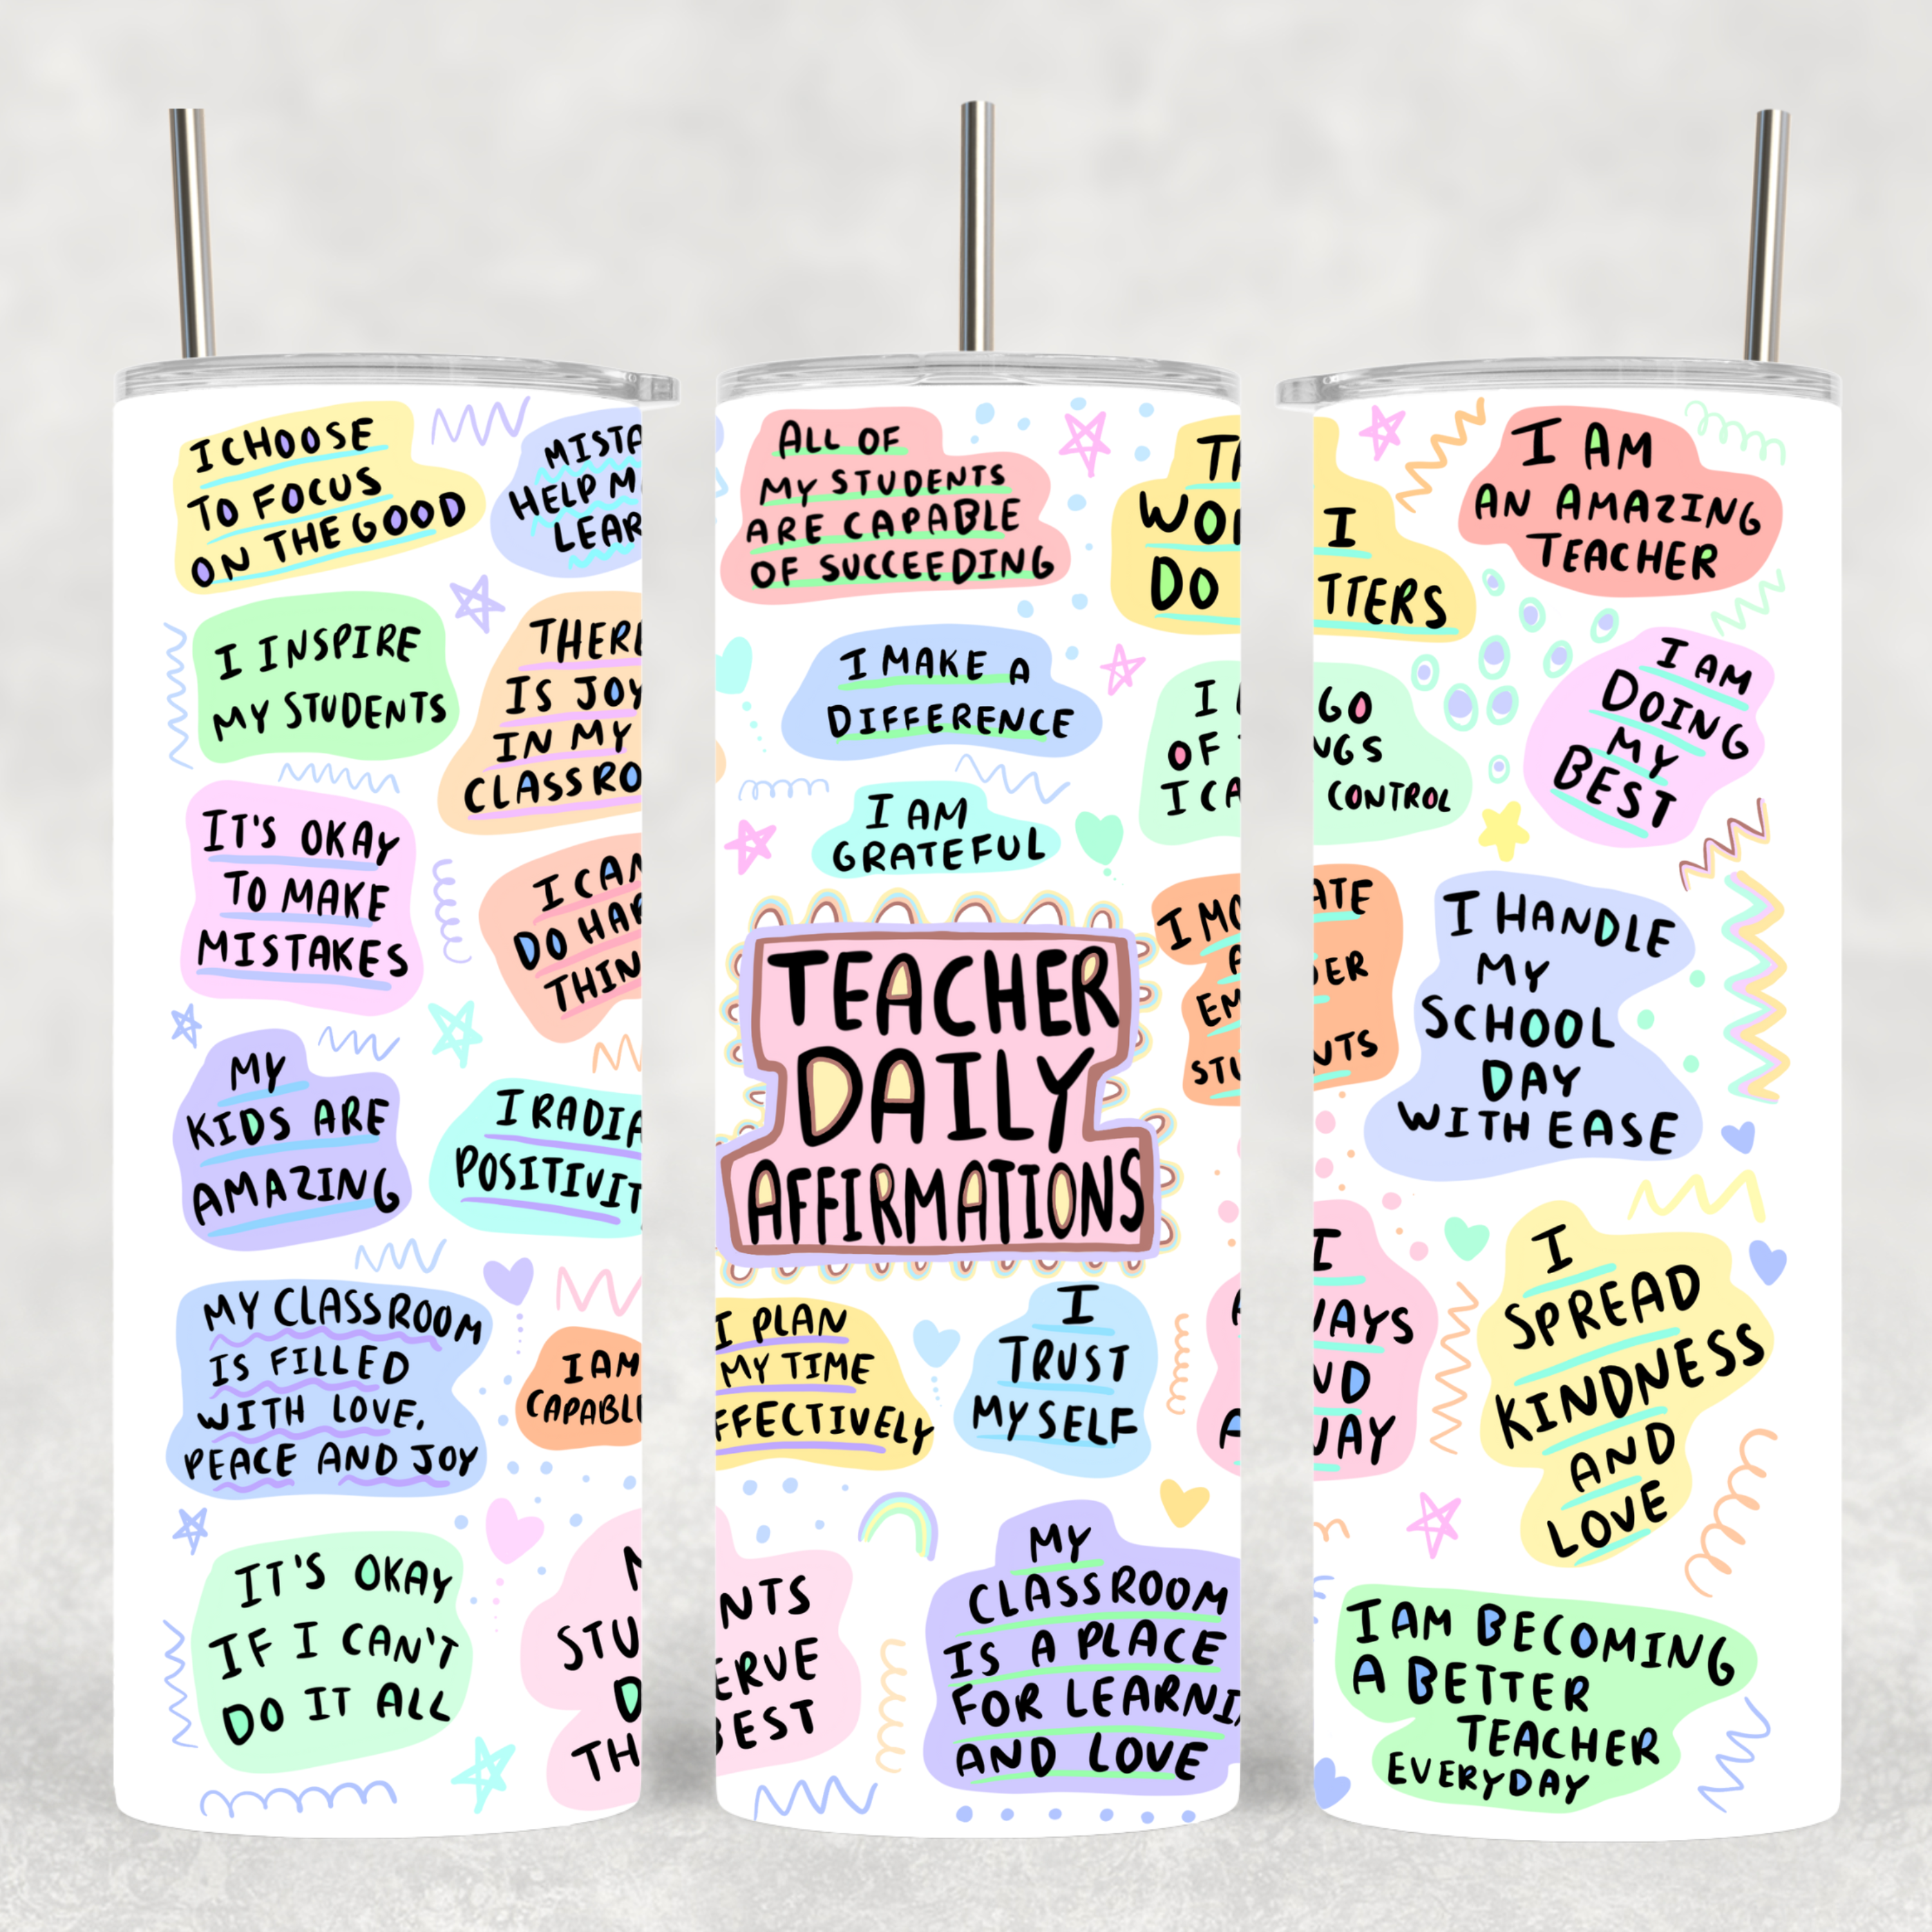 I CHOOSE
TO FOCUS
ON THE GOOD
MISTA
HELP M
LEAR
I INSPIRE
MY STUDENTS
THERE
IS JOY
IN MY
CLASSRO
IT'S OKAY
TO MAKE
MISTAKES
I CAN
DO HAR
THIN
MY
KIDS ARE
AMAZING
I RADIA
POSITIVIT
MY CLASSROOM
IS FILLED
WITH LOVE,
PEACE AND JOY
I AM
CAPABLE
IT'S OKAY
IF I CAN'T
DO IT ALL
STU
D
TH
ALL OF
MY STUDENTS
ARE CAPABLE
OF SUCCEEDING
WOR
DO
I MAKE A
DIFFERENCE
I
OF
I CA
I AM
GRATEFUL
TEACHER
DAILY
AFFIRMATIONS
I MO
EM
STU
I PLAN
MY TIME
FFECTIVELY
I
TRUST
MYSELF
NTS
ERVE
BEST
MY
CLASSROOM
IS A PLACE
FOR LEARNI
AND LOVE
I
TTERS
I AM
AN AMAZING
TEACHER
GO
NGS
CONTROL
I AM
DOING
MY
BEST
ATE
DER
NTS
I HANDLE
MY
SCHOOL
DAY
WITH EASE
I
WAYS
ND
WAY
I
SPREAD
KINDNESS
AND
LOVE
I AM BECOMING
A BETTER
TEACHER
EVERYDAY